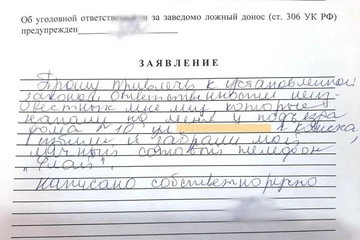 Об уголовной ответственности за заведомо ложный донос (ст. 306 УК РФ)
предупрежден
ЗАЯВЛЕНИЕ
Прошу привлечь к установленной
законом ответственности неиз-
вестных мне лиц которые
напали на меня у подъезда
дома № 10 ул г. Канска
избили и забрали мой
личный сотовый телефон
"Флай".
Написано собственноручно